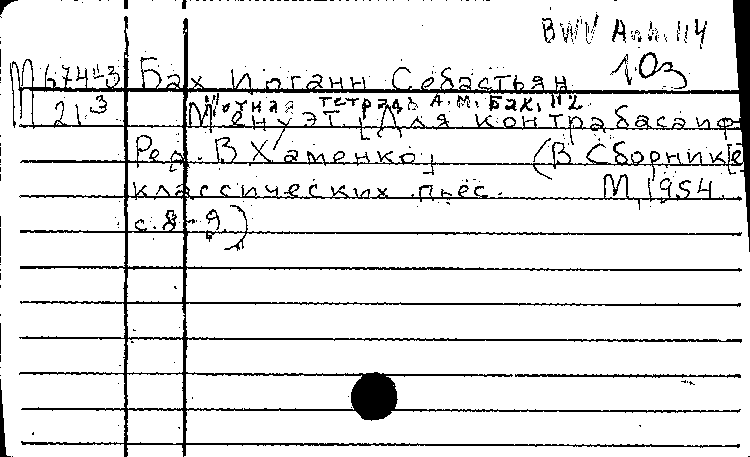 BWV Anh. 114
1 Оз
М 674-3 Бах Иоганн Себастьян
Нотная тетрадь А.М. Бах, №2
М 21.3 Менуэт. [Для контрабаса и ф
Ред. В Хоменко] (В Сборник[е
классических пьес. М, 1954.
с. 8-9.)